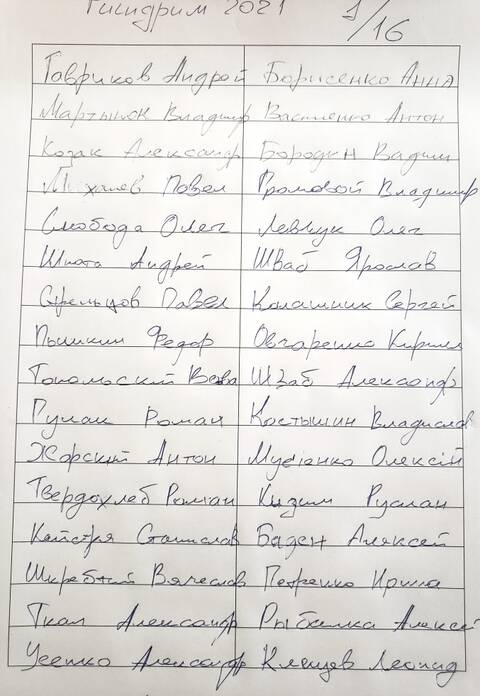 2021 1/16
Гавриков Андрей Борисенко Анна
Мартынюк Владимир Василенко Антон
Козак Александр Бородин Вадим
Михалев Павел Громовой Владимир
Слобода Олег Левчук Олег
Шпота Андрей Шваб Ярослав
Стрельцов Павел Калашник Сергей
Пышкин Федор Овчаренко Кирилл
Вова Шваб Александр
Гулак Роман Костышин Владислав
Жарский Антон Мусієнко Олексій
Твердохлеб Роман Кизим Руслан
Станислав Баден Алексей
Вячеслав Петренко Ирина
Ткач Александр Рыбалка Алексей
Усенко Александр Клецев Леонид